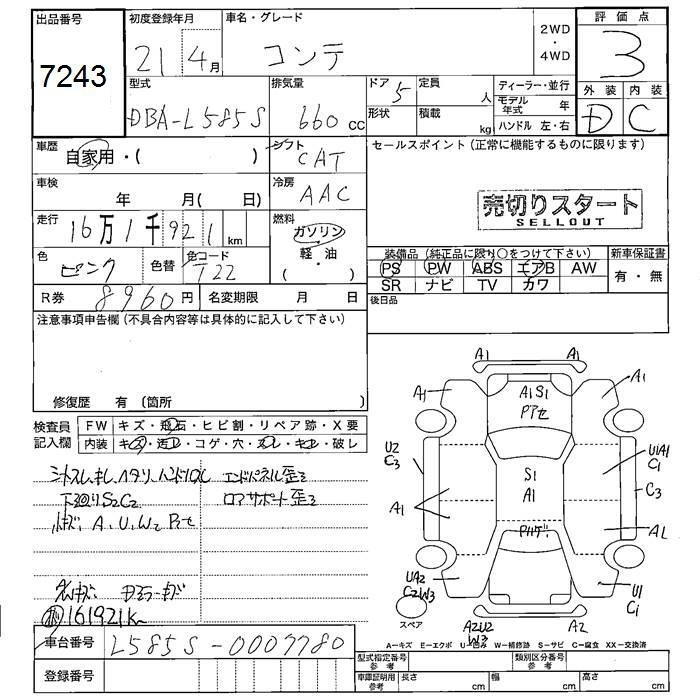 出品番号
7243
初度登録年月
21 4月
車名・グレード
コンテ
2WD
・
4WD
評価点
3
外装 内装
D C
型式
DBA-L585S
排気量
660 cc
ドア 5
定員 人
形状
積載 kg
ディーラー・並行
モデル年式 年
ハンドル 左・右
車歴
自家用・( )
シフト
CAT
セールスポイント(正常に機能するものに限ります)
売切りスタート
SELLOUT
車検
年 月( 日)
冷房
AAC
走行
16万1千921 km
燃料
ガソリン
軽・油
( )
色
ピンク
色替
色コード
T22
装備品(純正品に限り○をつけて下さい)
PS PW ABS エアB AW
SR ナビ TV カワ
新車保証書
有・無
R券 8960円
名変期限 月 日
後日品
注意事項申告欄(不具合内容等は具体的に記入して下さい)
修復歴 有(箇所 )
検査員
記入欄
FW キズ・飛石・ヒビ割・リペア跡・X要
内装 キズ・汚レ・コゲ・穴・スレ・キレ・破レ
下廻りS2C2
エンドパネル歪3
ロアサポート歪3
A、U、W2
161921K
A1 A1
A1 A1S1 A1
U2
C3
U1A1
C1
S1
A1
C3
A1
UA2
C2W3
U1
C1
スペア
A2U2
W3
A2
A-キズ E-エクボ U-凹み W-補修跡 S-サビ C-腐食 XX-交換済
車台番号
L585S-0007780
登録番号
型式指定番号
参考
類別区分番号
参考
車庫証明用
参考
長さ cm 幅 cm 高さ cm